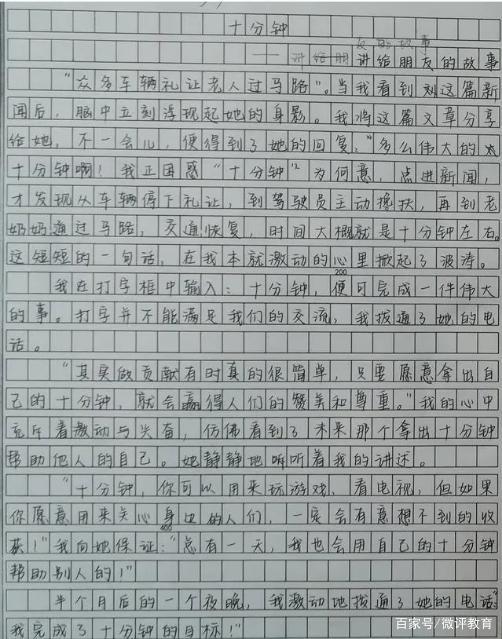 十分钟
——讲给朋友的故事
“众多车辆礼让老人过马路”。当我看到刘这篇新
闻后,脑中立刻浮现起她的身影。我将这篇文章分享
给她,不一会儿,便得到了她的回复:“多么伟大的
十分钟啊!我正困惑“十分钟”为何意,点进新闻,
才发现从车辆停下礼让,到驾驶员主动搀扶,再到老
奶奶通过马路,交通恢复,时间大概就是十分钟左右。
这短短的一句话,在我本就激动的心里掀起了波涛。
200
我在打字框中输入:十分钟,便可完成一件伟大
的事。打字并不能满足我们的交流,我拨通了她的电
话。
“其实做贡献有时真的很简单,只要愿意拿出自
己的十分钟,就会赢得人们的赞美和尊重。”我的心中
充斥着激动与兴奋,仿佛看到了未来那个拿出十分钟
帮助他人的自己。她静静地听着我的讲述。
“十分钟,你可以用来玩游戏、看电视,但如果
你愿意用来关心身边的人们,一定会有意想不到的收
400
获!”我向她保证:“总有一天,我也会用自己的十分钟
帮助别人的!”
半个月后的一个夜晚,我激动地拨通了她的电话“
我完成了十分钟的目标!”
百家号/微评教育